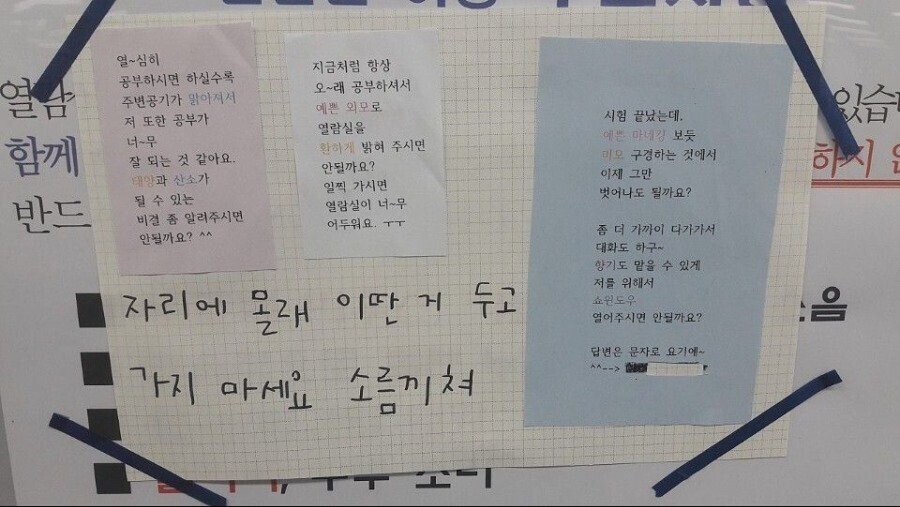 열~심히
공부하시면 하실수록
주변공기가 맑아져서
저 또한 공부가
너~무
잘 되는 것 같아요.
태양과 산소가
될 수 있는
비결 좀 알려주시면
안될까요? ^^
지금처럼 항상
오~래 공부하셔서
예쁜 외모로
열람실을
환하게 밝혀 주시면
안될까요?
일찍 가시면
열람실이 너~무
어두워요. ㅜㅜ
시험 끝났는데.
예쁜 마네킹 보듯
미모 구경하는 것에서
이제 그만
벗어나도 될까요?
좀 더 가까이 다가가서
대화도 하구~
향기도 맡을 수 있게
저를 위해서
쇼윈도우
열어주시면 안될까요?
답변은 문자로 요기에~
^^-->
자리에 몰래 이딴 거 두고
가지 마세요 소름끼쳐
열람
있습니
함께
하시
반드
소음
소리